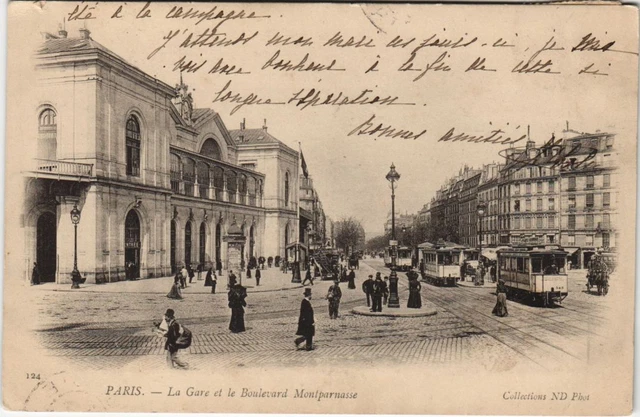 été à la campagne.
J'attends mon mari ces jours-ci, je
vois avec bonheur à la fin de cette si
longue séparation.
Bonnes amitiés
124
PARIS. — La Gare et le Boulevard Montparnasse
Collections ND Phot